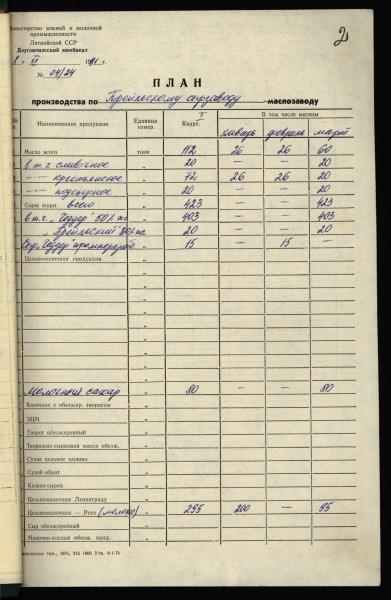 2
Министерство мясной и молочной
промышленности
Латвийской ССР
Даугавпилсский комбинат
№ 04/24
ПЛАН
производства по Прейльскому сырзаводу маслозаводу
Наименование продукции Единица измер. I Кварт. В том числе месяцы
январь февраль март
Масло всего тонн 112 26 26 60
в т.ч. сливочное " 20 — — 20
—"— крестьянское " 72 26 26 20
—"— подсырное " 20 — — 20
Сыры жирн. всего " 423 — — 423
в т.ч. „Чеддер" 50% жс " 403 — — 403
„Прейльский" " 20 — — 20
Сыр „Чеддер" " 15 — 15 —
Цельномолочная продукция "
Молочный сахар " 80 — — 80
Блинчики с обезжир. творогом "
ЗЦМ "
Творог обезжиренный "
Творожно-сырковая масса обезж. "
Сухое цельное молоко "
Сухой обрат "
Казеин-сырец "
Цельномолочная Ленинграду "
Цельномолочная — Риге (молоко) " 295 200 — 95
Сыр обезжиренный "
Молочно-кислая обезж. прод. "